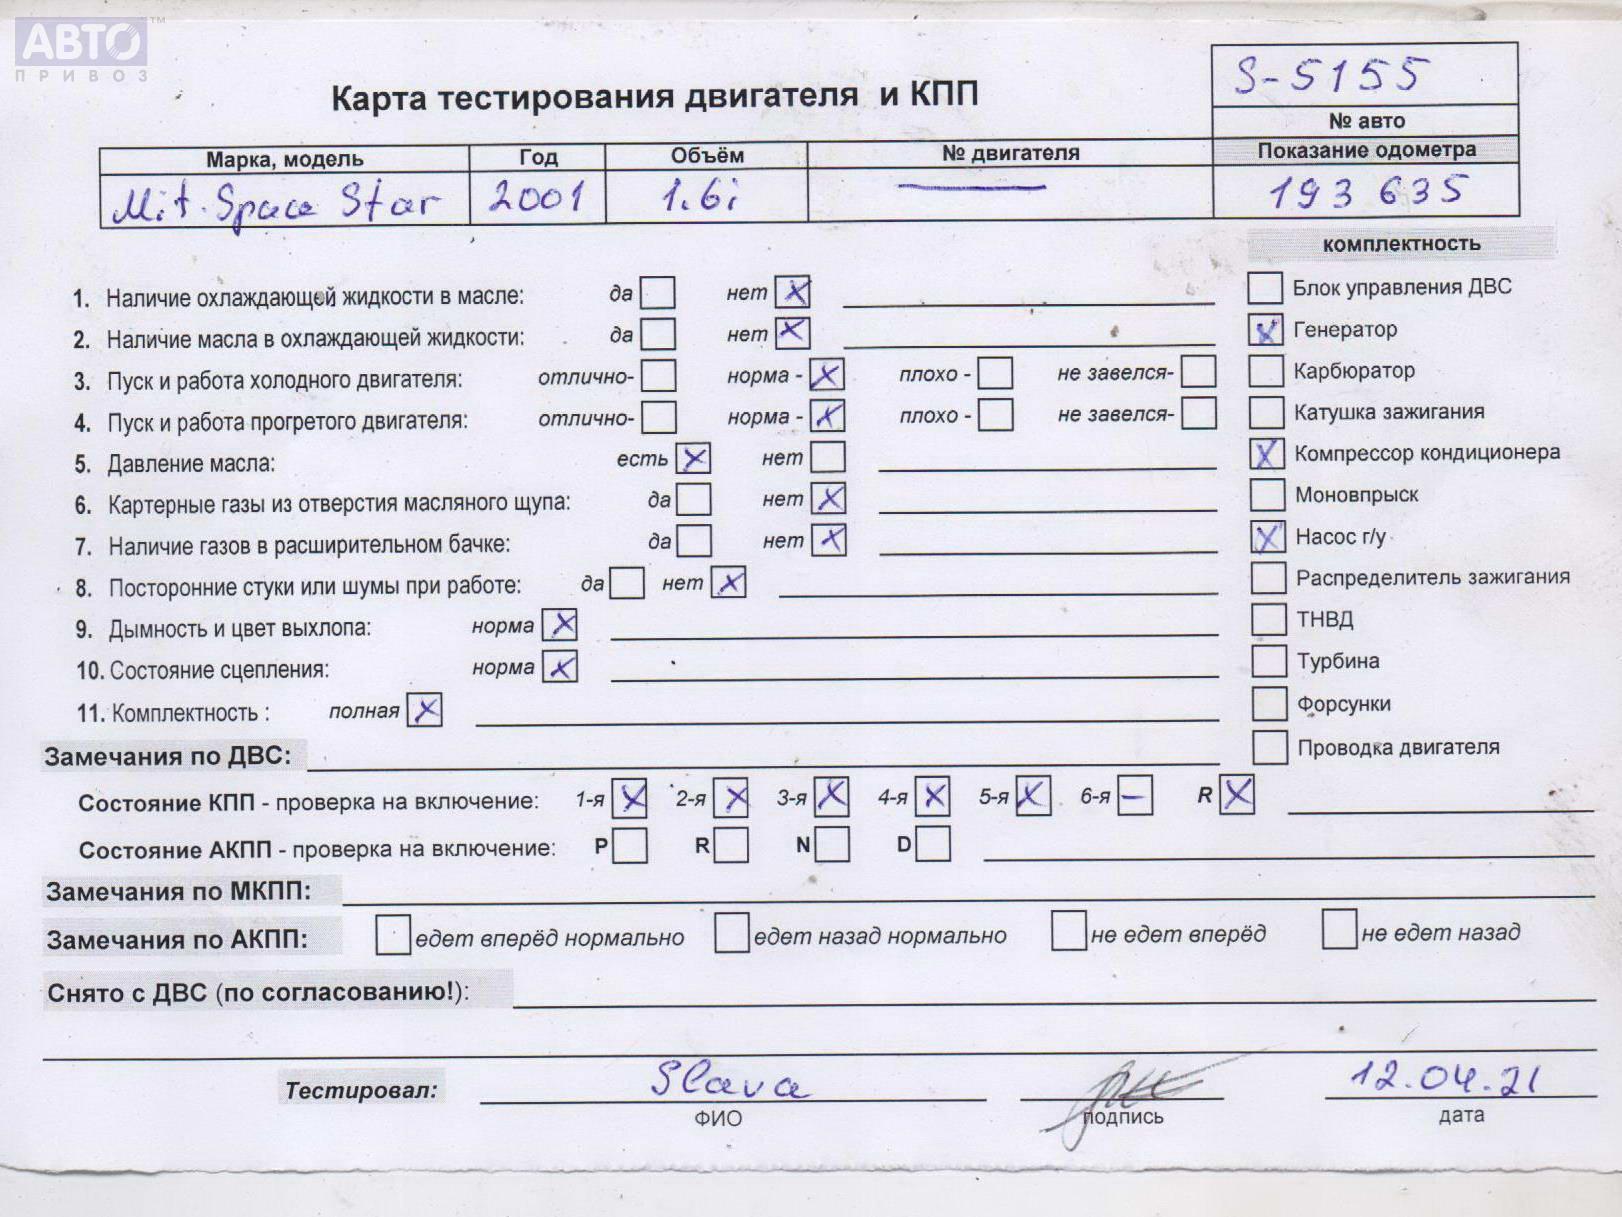 АВТО™
ПРИВОЗ
S-5155
Карта тестирования двигателя и КПП
№ авто
Марка, модель Год Объём № двигателя Показание одометра
Mit. Space Star 2001 1.6i — 193 635
комплектность
1. Наличие охлаждающей жидкости в масле: да нет X
Блок управления ДВС
2. Наличие масла в охлаждающей жидкости: да нет X
X Генератор
3. Пуск и работа холодного двигателя: отлично- норма - X плохо - не завелся-
Карбюратор
4. Пуск и работа прогретого двигателя: отлично- норма - X плохо - не завелся-
Катушка зажигания
5. Давление масла: есть X нет
X Компрессор кондиционера
6. Картерные газы из отверстия масляного щупа: да нет X
Моновпрыск
7. Наличие газов в расширительном бачке: да нет X
X Насос г/у
8. Посторонние стуки или шумы при работе: да нет X
Распределитель зажигания
9. Дымность и цвет выхлопа: норма X
ТНВД
10. Состояние сцепления: норма X
Турбина
11. Комплектность : полная X
Форсунки
Замечания по ДВС:
Проводка двигателя
Состояние КПП - проверка на включение: 1-я X 2-я X 3-я X 4-я X 5-я X 6-я — R X
Состояние АКПП - проверка на включение: P R N D
Замечания по МКПП:
Замечания по АКПП: едет вперёд нормально едет назад нормально не едет вперёд не едет назад
Снято с ДВС (по согласованию!):
Тестировал: Slava 12.04.21
ФИО подпись дата